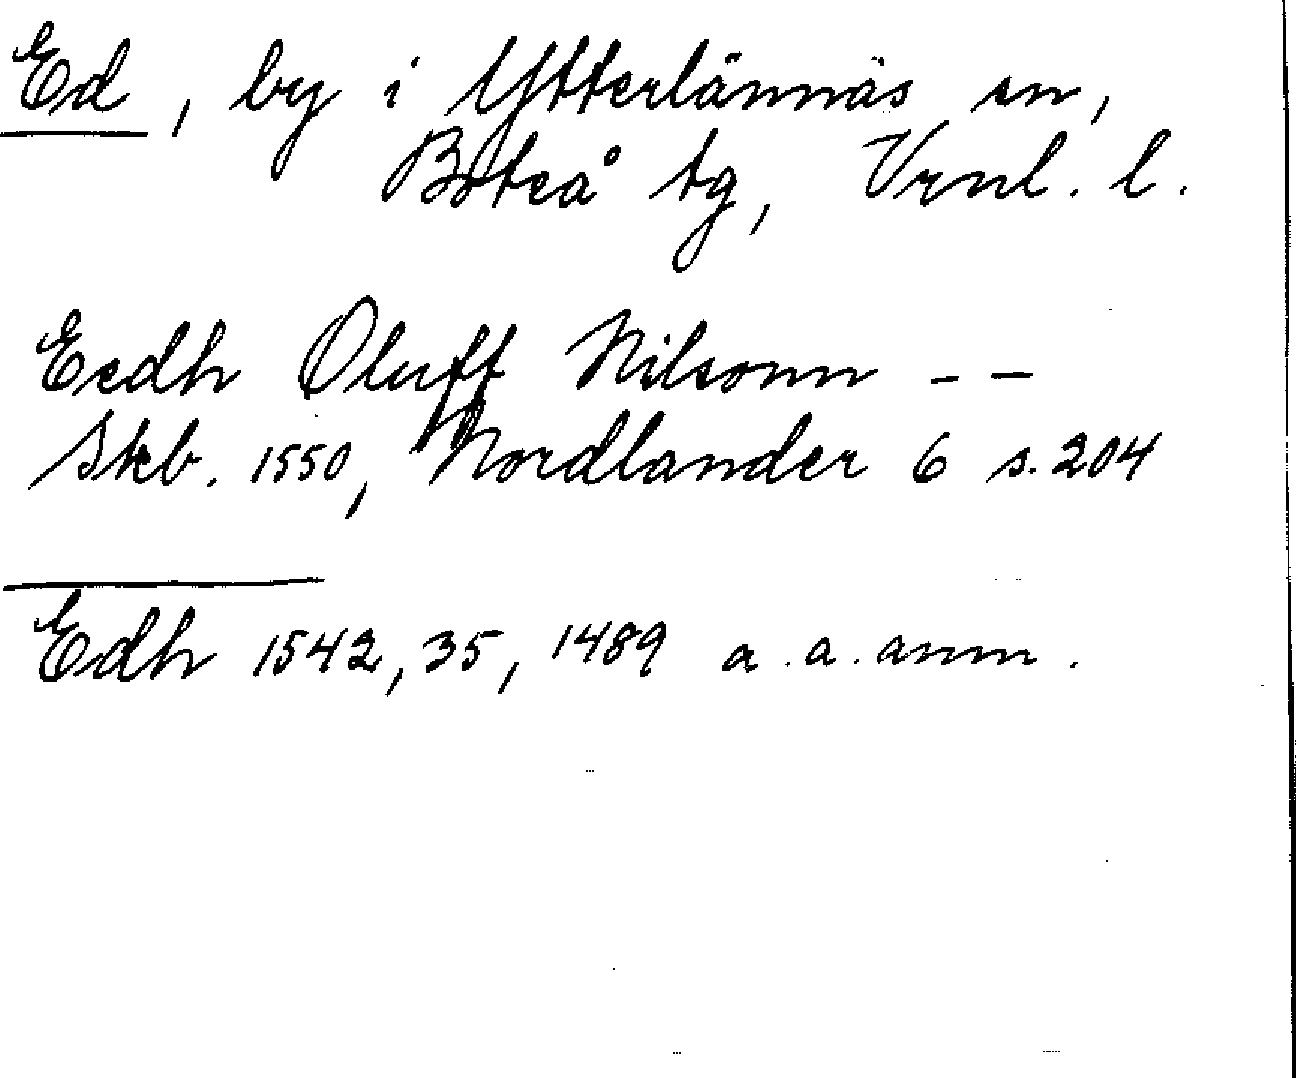 Ed, by i Ytterlännäs sn,
Boteå tg, Vrnl. l.
Eedh Oluff Nilsonn - -
Skb. 1550, Nordlander 6 s. 204
Edh 1542, 35, 1489 a. a. anm.